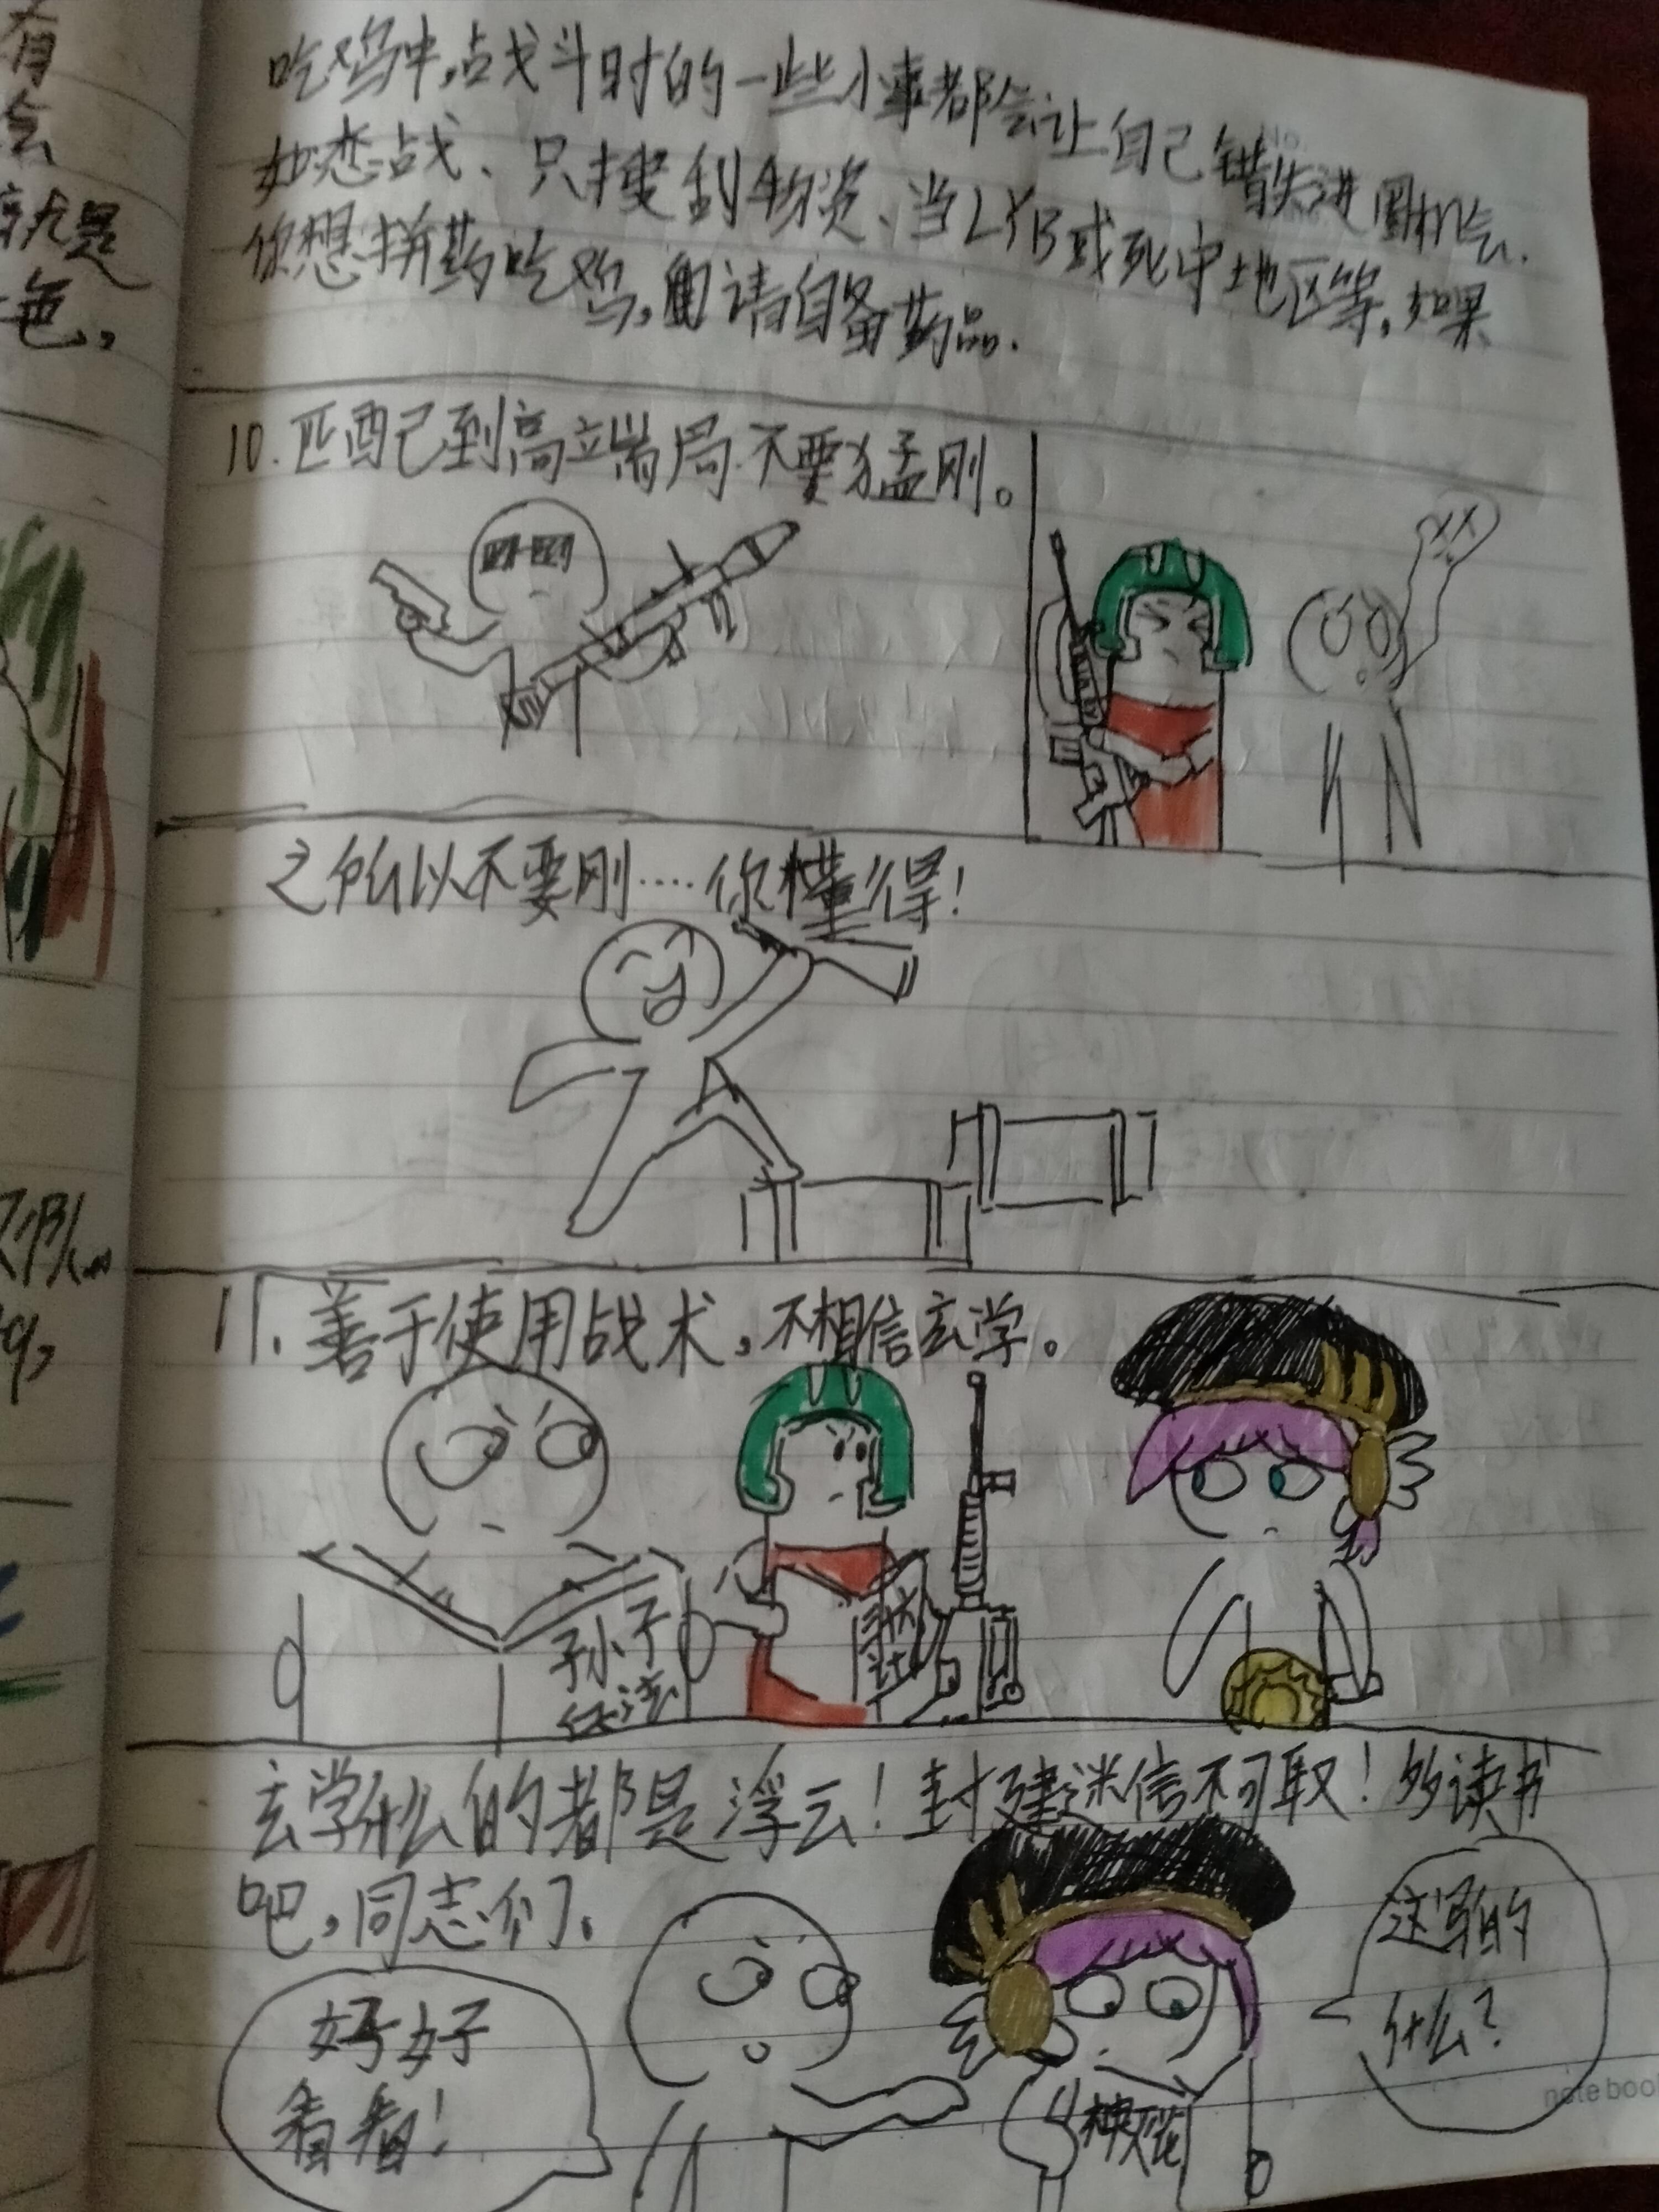 有
会
就是
色,
吃鸡中,战斗时的一些小事都会让自己错失进圈机会.
如恋战、只搜刮物资、当LYB或死守地区等,如果
你想拼药吃鸡,请自备药品.
10.匹配已到高立端局.不要猛刚。
之所以不要刚……你懂得!
11.善于使用战术,不相信玄学。
孙子
兵法
玄学什么的都是浮云!封建迷信不可取!多读书
吧,同志们.
好好
看看!
这写的
什么?
notebook